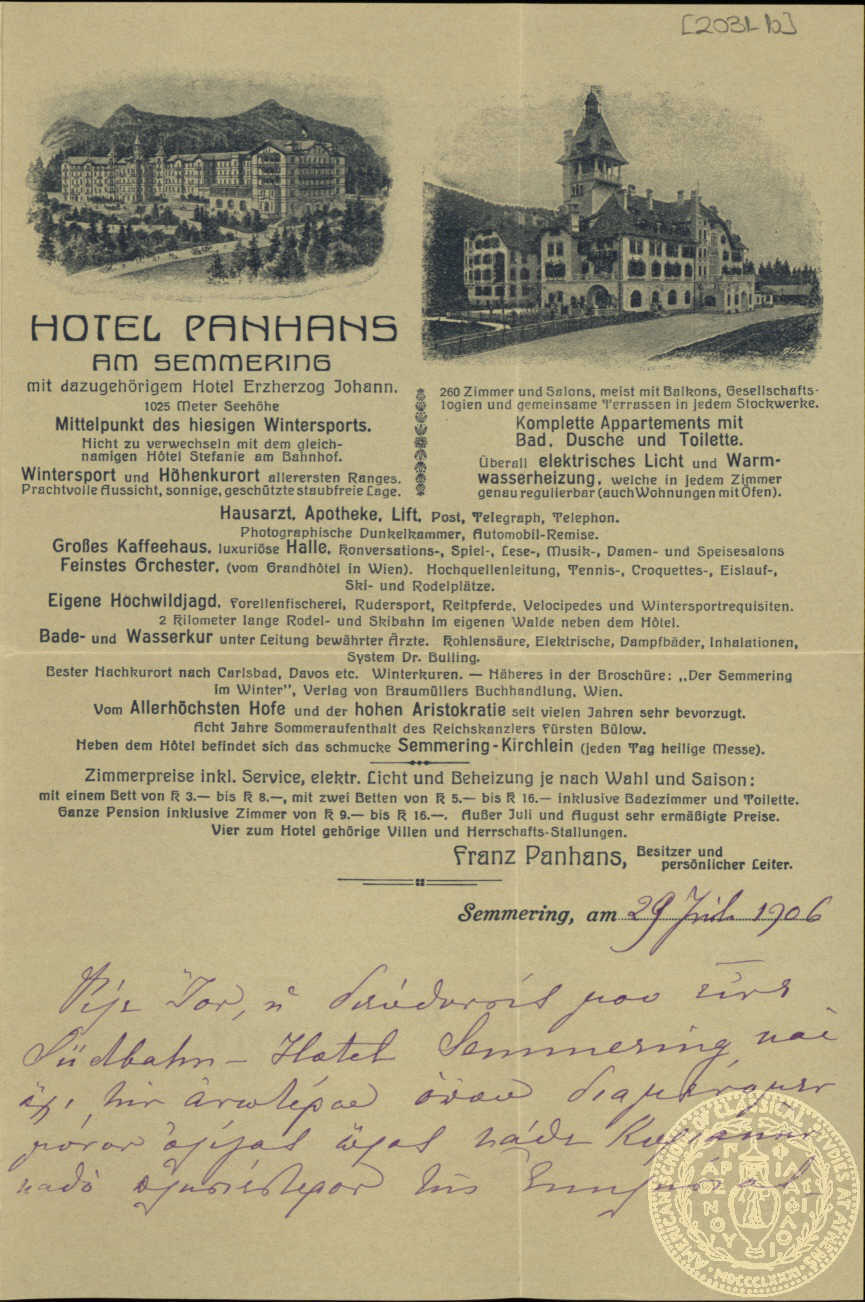 [203L b]
HOTEL PANHANS
AM SEMMERING
mit dazugehörigem Hotel Erzherzog Johann.
1025 Meter Seehöhe
Mittelpunkt des hiesigen Wintersports.
Nicht zu verwechseln mit dem gleich-
namigen Hôtel Stefanie am Bahnhof.
Wintersport und Höhenkurort allerersten Ranges.
Prachtvolle Aussicht, sonnige, geschützte staubfreie Lage.
260 Zimmer und Salons, meist mit Balkons, Gesellschafts-
logien und gemeinsame Terrassen in jedem Stockwerke.
Komplette Appartements mit
Bad, Dusche und Toilette.
Überall elektrisches Licht und Warm-
wasserheizung, welche in jedem Zimmer
genau regulierbar (auch Wohnungen mit Öfen).
Hausarzt, Apotheke, Lift, Post, Telegraph, Telephon.
Photographische Dunkelkammer, Automobil-Remise.
Großes Kaffeehaus, luxuriöse Halle, Konversations-, Spiel-, Lese-, Musik-, Damen- und Speisesalons
Feinstes Orchester, (vom Grandhôtel in Wien). Hochquellenleitung, Tennis-, Croquettes-, Eislauf-,
Ski- und Rodelplätze.
Eigene Hochwildjagd, Forellenfischerei, Rudersport, Reitpferde, Velocipedes und Wintersportrequisiten.
2 Kilometer lange Rodel- und Skibahn im eigenen Walde neben dem Hôtel.
Bade- und Wasserkur unter Leitung bewährter Ärzte. Kohlensäure, Elektrische, Dampfbäder, Inhalationen,
System Dr. Bulling.
Bester Nachkurort nach Carlsbad, Davos etc. Winterkuren. — Näheres in der Broschüre: „Der Semmering
im Winter", Verlag von Braumüllers Buchhandlung, Wien.
Vom Allerhöchsten Hofe und der hohen Aristokratie seit vielen Jahren sehr bevorzugt.
Acht Jahre Sommeraufenthalt des Reichskanzlers Fürsten Bülow.
Neben dem Hôtel befindet sich das schmucke Semmering-Kirchlein (jeden Tag heilige Messe).
Zimmerpreise inkl. Service, elektr. Licht und Beheizung je nach Wahl und Saison:
mit einem Bett von K 3.— bis K 8.—, mit zwei Betten von K 5.— bis K 16.— inklusive Badezimmer und Toilette.
Ganze Pension inklusive Zimmer von K 9.— bis K 16.—. Außer Juli und August sehr ermäßigte Preise.
Vier zum Hotel gehörige Villen und Herrschafts-Stallungen.
Franz Panhans, Besitzer und
persönlicher Leiter.
Semmering, am 29 Juil. 1906
Ίων, ἡ διεύθυνσίς μου εἶνε
Südbahn - Hotel Semmering καὶ
ὄχι τὴν ἀνωτέρω ὅπου
μόνον ὀλίγας ὥρας κάθε
τῆς
AMERICAN SCHOOL OF CLASSICAL STUDIES AT ATHENS
MDCCCLXXXI